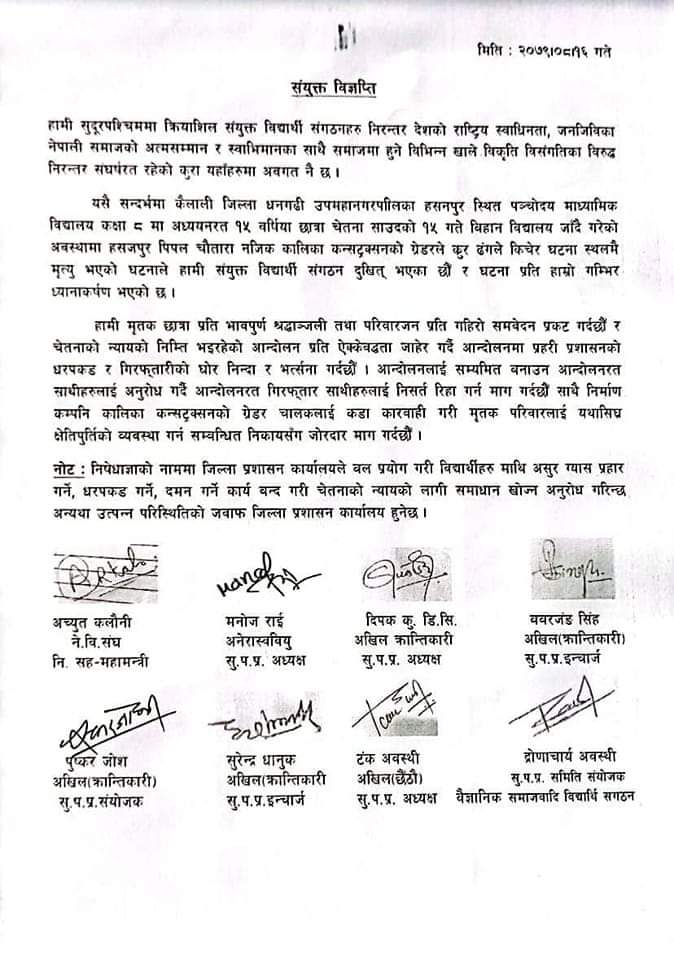 मिति : २०७९।०८।१६ गते
संयुक्त विज्ञप्ति
हामी सुदूरपश्चिममा क्रियाशिल संयुक्त विद्यार्थी संगठनहरु निरन्तर देशको राष्ट्रिय स्वाधिनता, जनजिविका
नेपाली समाजको अत्मसम्मान र स्वाभिमानका साथै समाजमा हुने विभिन्न खाले विकृति विसंगतिका विरुद्ध
निरन्तर संघर्षरत रहेको कुरा यहाँहरुमा अवगत नै छ ।
यसै सन्दर्भमा कैलाली जिल्ला धनगढी उपमहानगरपाीलका हसनपुर स्थित पञ्चोदय माध्यामिक
विद्यालय कक्षा ८ मा अध्ययनरत १५ वर्षिया छात्रा चेतना साउदको १५ गते विहान विद्यालय जाँदै गरेको
अवस्थामा हसजपुर पिपल चौतारा नजिक कालिका कन्सट्रक्सनको ग्रेडरले कुर ढंगले किचेर घटना स्थलमै
मृत्यु भएको घटनाले हामी संयुक्त विद्यार्थी संगठन दुखित् भएका छौं र घटना प्रति हाम्रो गम्भिर
ध्यानाकर्षण भएको छ ।
हामी मृतक छात्रा प्रति भावपुर्ण श्रद्धाञ्जली तथा परिवारजन प्रति गहिरो समवेदन प्रकट गर्दछौं र
चेतनाको न्यायको निम्ति भइरहेको आन्दोलन प्रति ऐक्केवद्धता जाहेर गर्दै आन्दोलनमा प्रहरी प्रशासनको
धरपकड र गिरफ्तारीको घोर निन्दा र भर्त्सना गर्दछौं । आन्दोलनलाई सम्यमित बनाउन आन्दोलनरत
साथीहरुलाई अनुरोध गर्दै आन्दोलनरत गिरफ्तार साथीहरुलाई निसर्त रिहा गर्न माग गर्दछौं साथै निर्माण
कम्पनि कालिका कन्सट्रक्सनको ग्रेडर चालकलाई कडा कारवाही गरी मृतक परिवारलाई यथासिघ्र
क्षेतिपुर्तिको व्यवस्था गर्न सम्वन्धित निकायसँग जोरदार माग गर्दछौं ।
नोट : निषेधाज्ञाको नाममा जिल्ला प्रशासन कार्यालयले वल प्रयोग गरी विद्यार्थीहरु माथि असुर ग्यास प्रहार
गर्ने, धरपकड गर्ने, दमन गर्ने कार्य बन्द गरी चेतनाको न्यायको लागी समाधान खोज्न अनुरोध गरिन्छ
अन्यथा उत्पन्न परिस्थितिको जवाफ जिल्ला प्रशासन कार्यालय हुनेछ ।
अच्युत कलौनी मनोज राई दिपक कु. डि.सि. यवरजंड सिंह
ने.वि.संघ अनेरास्ववियु अखिल क्रान्तिकारी अखिल(क्रान्तिकारी)
नि. सह-महामन्त्री सु.प.प्र. अध्यक्ष सु.प.प्र. अध्यक्ष सु.प.प्र.इन्चार्ज
पुष्कर जोश सुरेन्द्र धानुक टंक अवस्थी द्रोणाचार्य अवस्थी
अखिल(क्रान्तिकारी) अखिल(क्रान्तिकारी अखिल(छैंठौ) सु.प.प्र. समिति संयोजक
सु.प.प्र.संयोजक सु.प.प्र.इन्चार्ज सु.प.प्र. अध्यक्ष वैज्ञानिक समाजवादि विद्यार्थि सगठन